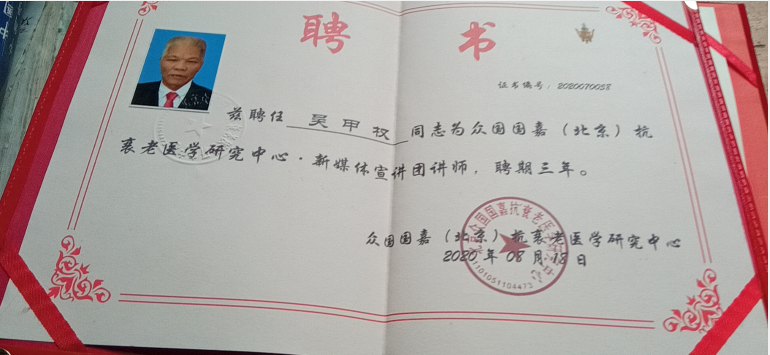 聘 书
证书编号：2020070058
兹聘任 吴甲权 同志为众国国嘉（北京）抗
衰老医学研究中心·新媒体宣讲团讲师，聘期三年。
众国国嘉（北京）抗衰老医学研究中心
2020 年 08 月 18 日
1101051104473